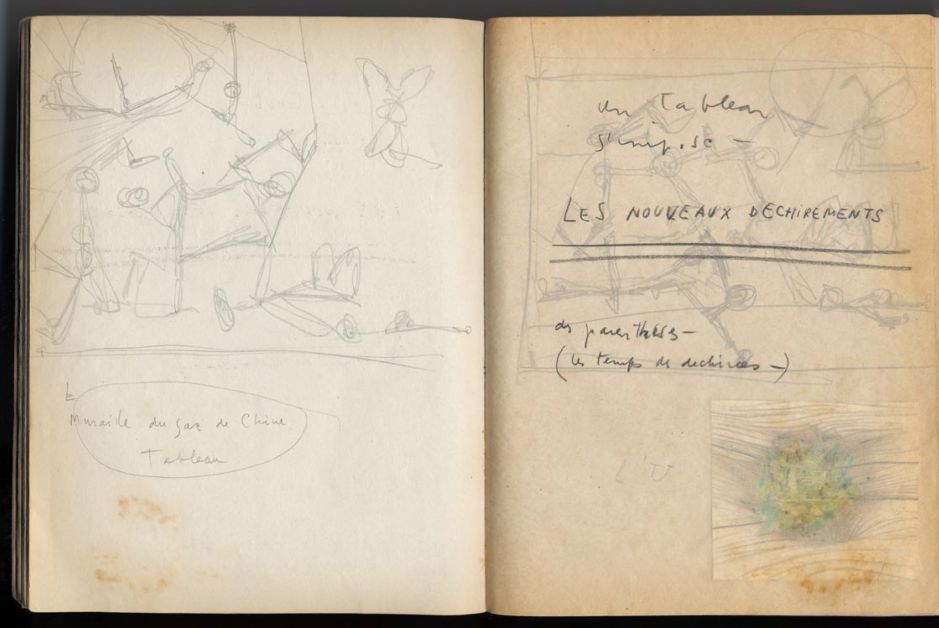 Muraille du gaz de Chine
Tableau
un Tableau
s'impose —
LES NOUVEAUX DECHIREMENTS
des parenthèses —
(les temps de dechirures —)
L'U